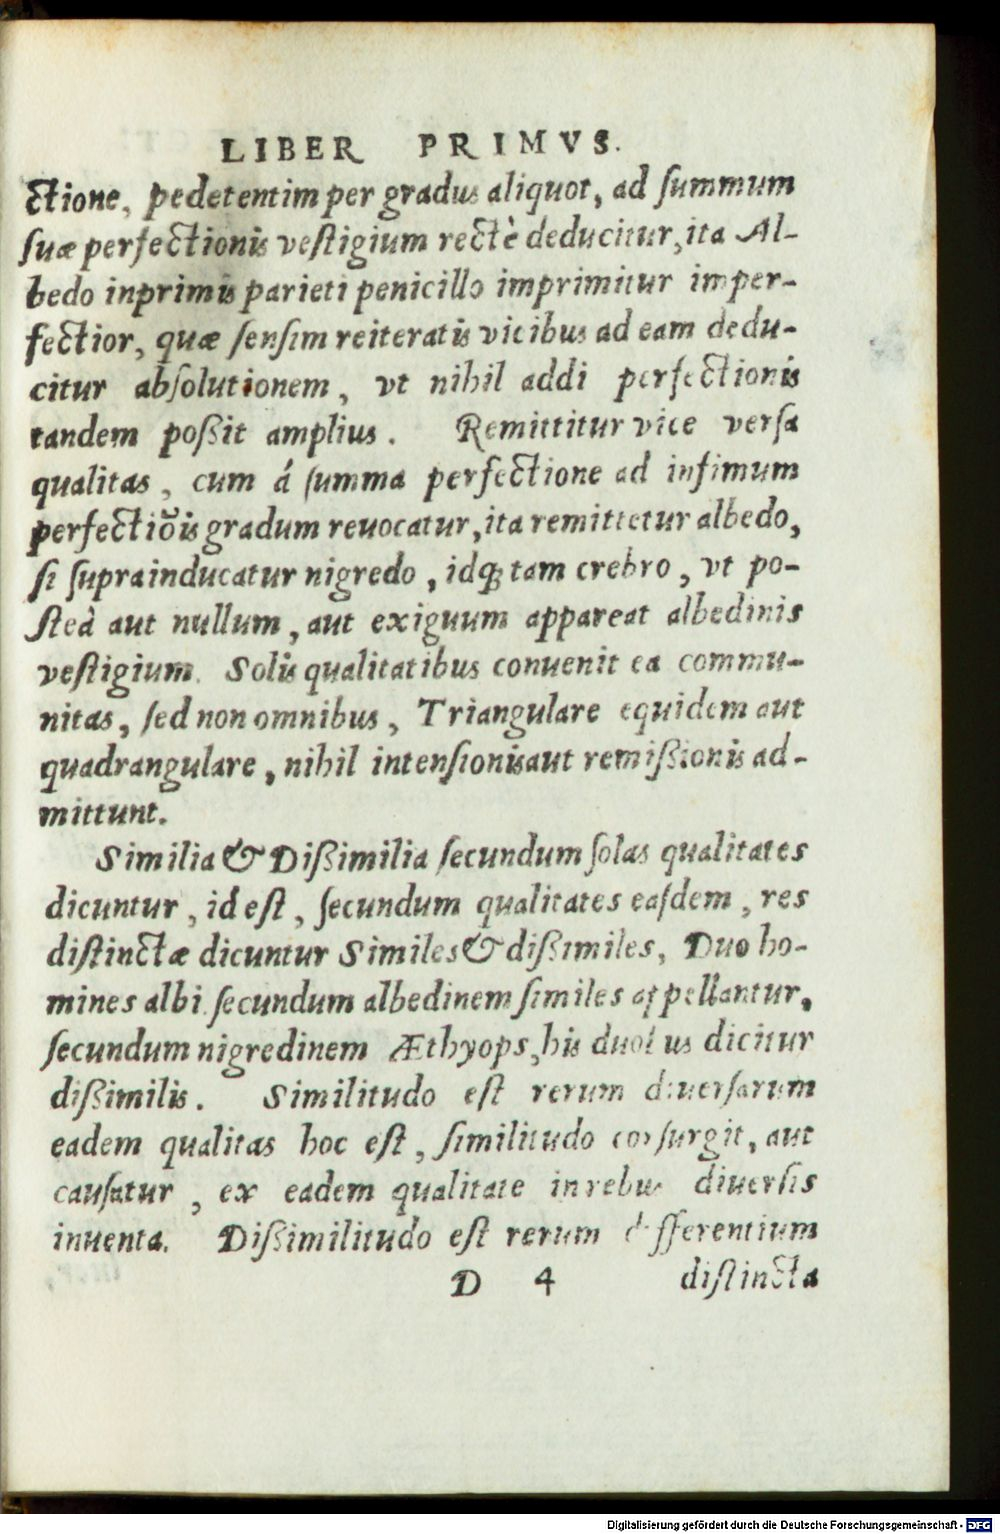 LIBER PRIMVS.
ctione, pedetentim per gradus aliquot, ad ſummum
ſuæ perfectionis veſtigium rectè deducitur, ita Al-
bedo inprimis parieti penicillo imprimitur imper-
fectior, quæ ſenſim reiteratis vicibus ad eam dedu-
citur abſolutionem, vt nihil addi perfectionis
tandem poßit amplius. Remittitur vice verſa
qualitas, cum á ſumma perfectione ad infimum
perfectiõis gradum reuocatur, ita remittetur albedo,
ſi ſuprainducatur nigredo, idq; tam crebro, vt po-
ſteà aut nullum, aut exiguum appareat albedinis
veſtigium. Solis qualitatibus conuenit ea commu-
nitas, ſed non omnibus, Triangulare equidem aut
quadrangulare, nihil intenſionis aut remißionis ad-
mittunt.
Similia & Dißimilia ſecundum ſolas qualitates
dicuntur, id eſt, ſecundum qualitates eaſdem, res
diſtinctæ dicuntur Similes & dißimiles, Duo ho-
mines albi ſecundum albedinem ſimiles appellantur,
ſecundum nigredinem Æthyops, his duobus dicitur
dißimilis. Similitudo eſt rerum diuerſarum
eadem qualitas hoc eſt, ſimilitudo conſurgit, aut
cauſatur, ex eadem qualitate in rebus diuerſis
inuenta. Dißimilitudo eſt rerum differentium
D 4 diſtincta
Digitalisierung gefördert durch die Deutsche Forschungsgemeinschaft - DFG